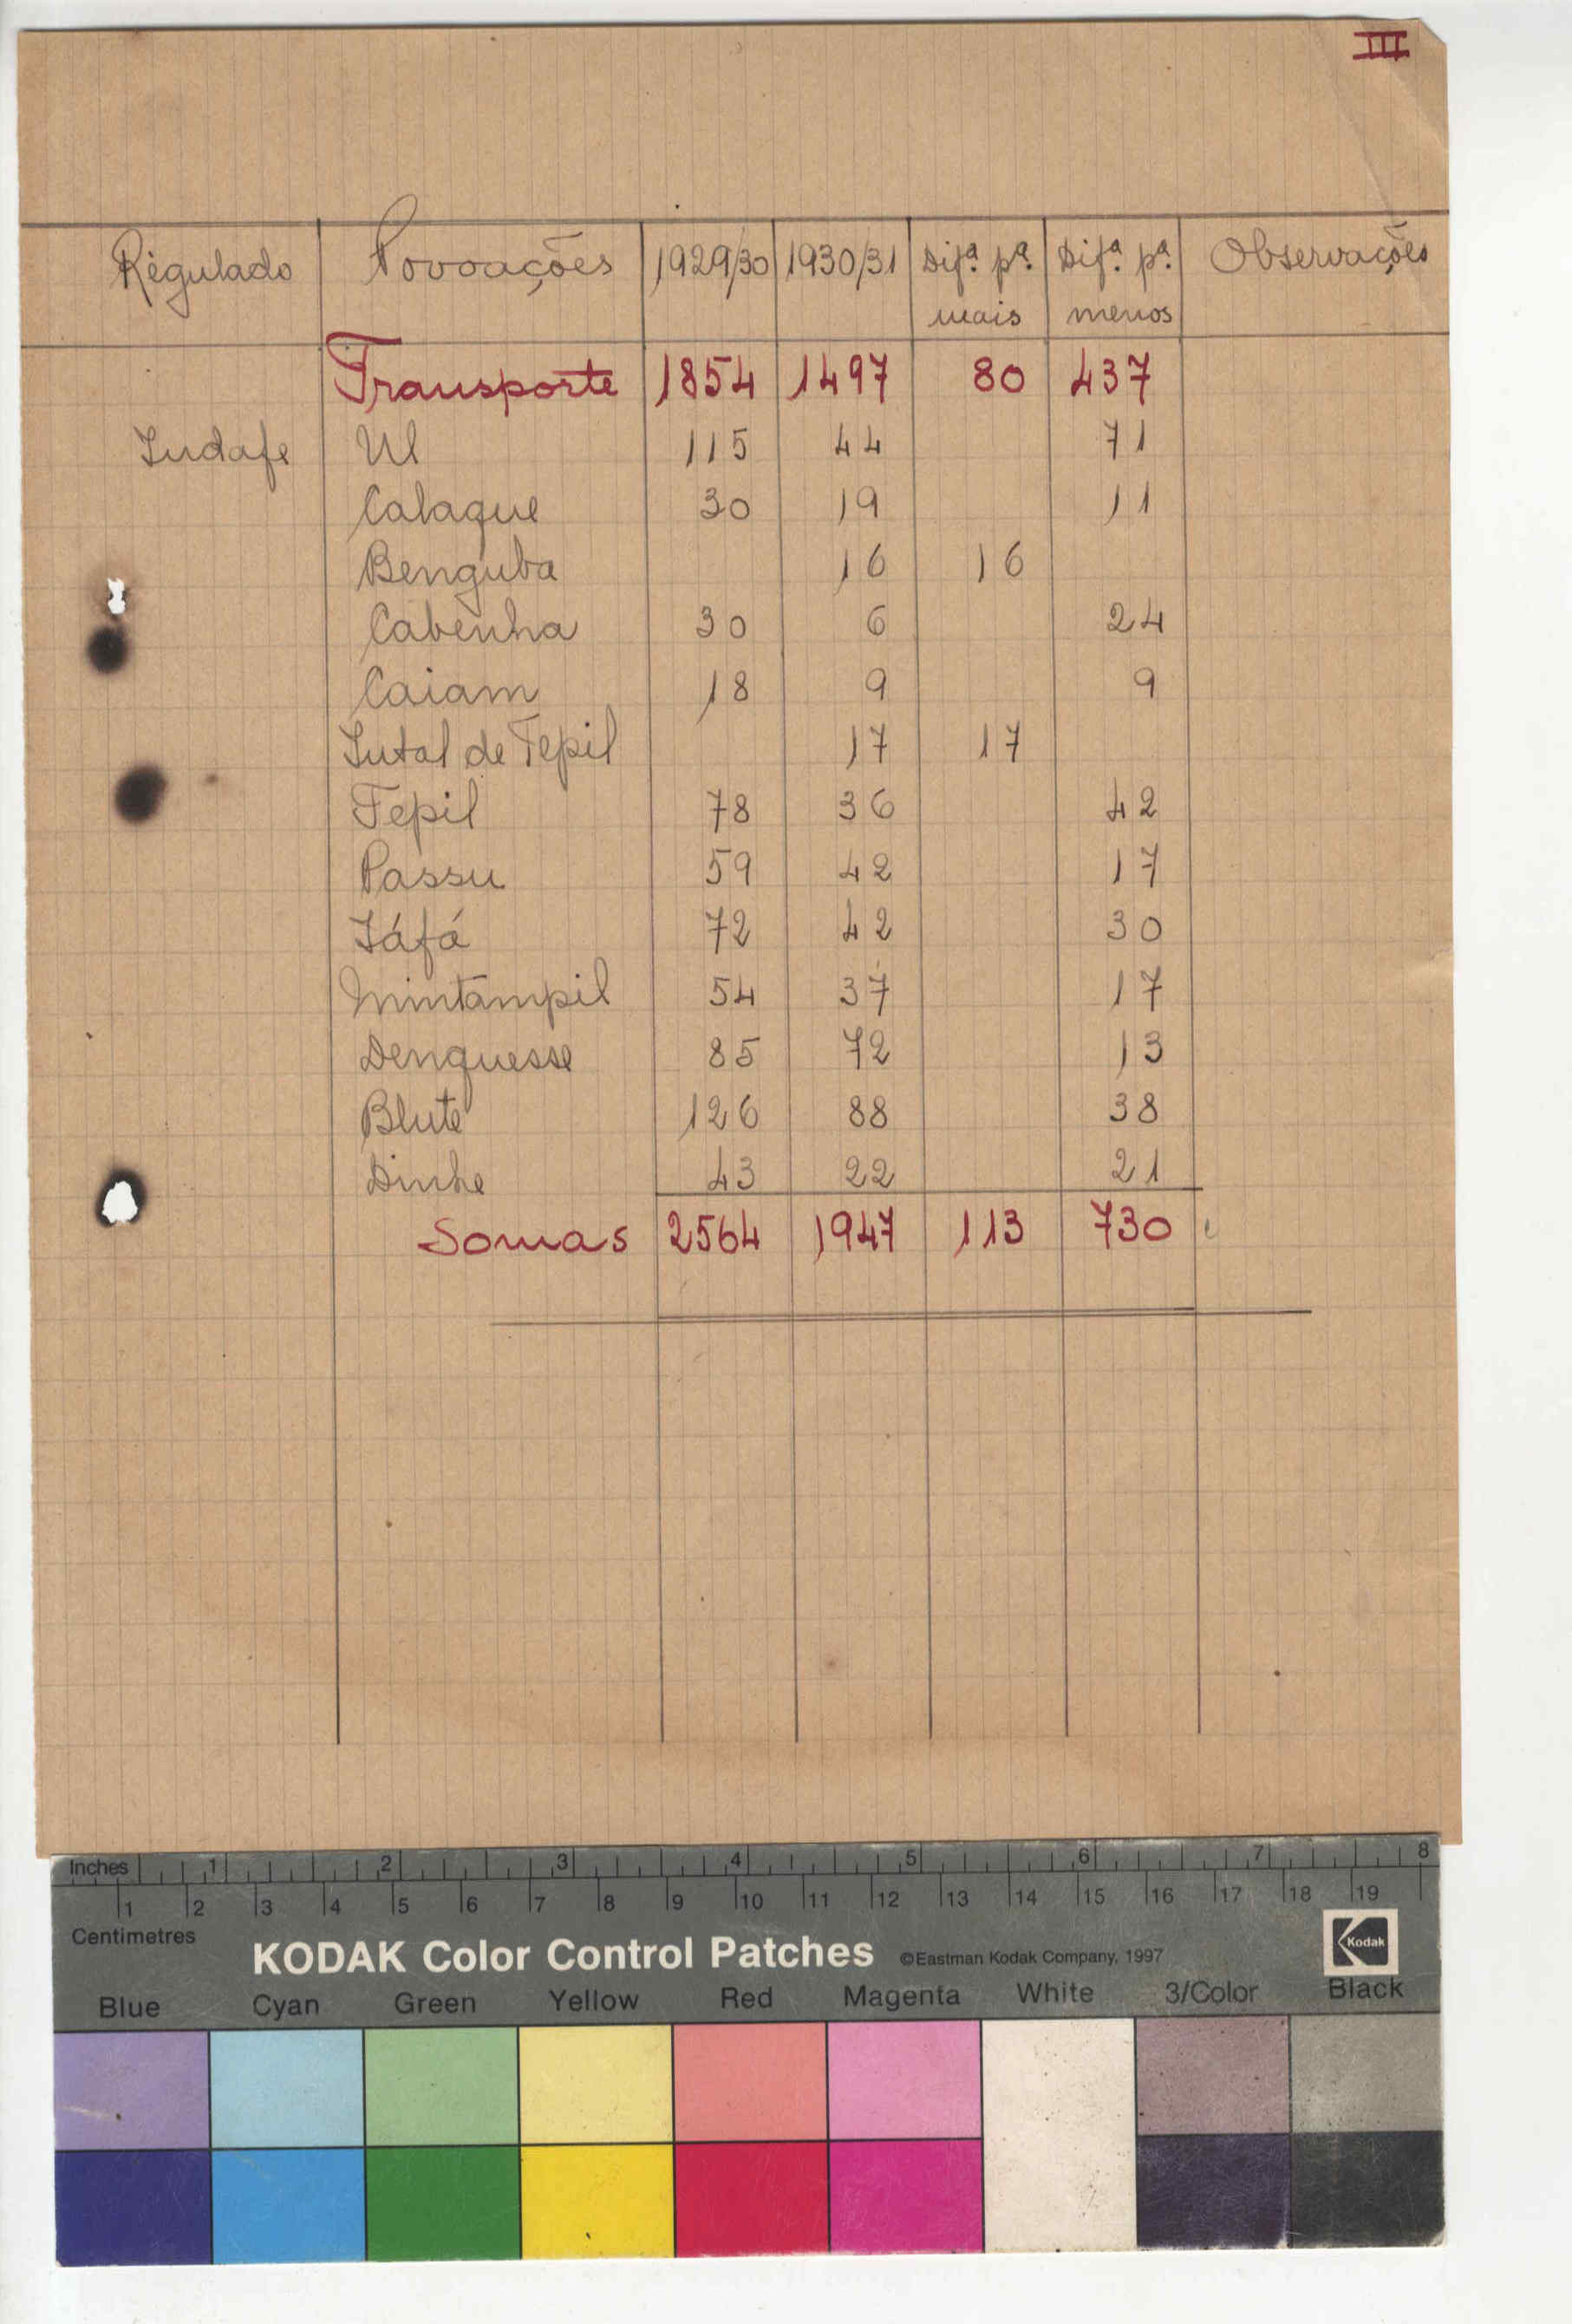 III
Régulado Povoações 1929/30 1930/31 Difª. pª. mais Difª. pª. menos Observações
Transporte 1854 1497 80 437
Indafe Ul 115 44 71
Calaque 30 19 11
Benguba 16 16
Cabenha 30 6 24
Caiam 18 9 9
Intal de Tepil 17 17
Tepil 78 36 42
Passu 59 42 17
Iáfá 72 42 30
Inintampil 54 37 17
Denquesse 85 72 13
Blute 126 88 38
Dinhe 43 22 21
Somas 2564 1947 113 730
Inches 1 2 3 4 5 6 7 8
1 2 3 4 5 6 7 8 9 10 11 12 13 14 15 16 17 18 19
Centimetres
KODAK Color Control Patches ©Eastman Kodak Company, 1997 Kodak
Blue Cyan Green Yellow Red Magenta White 3/Color Black